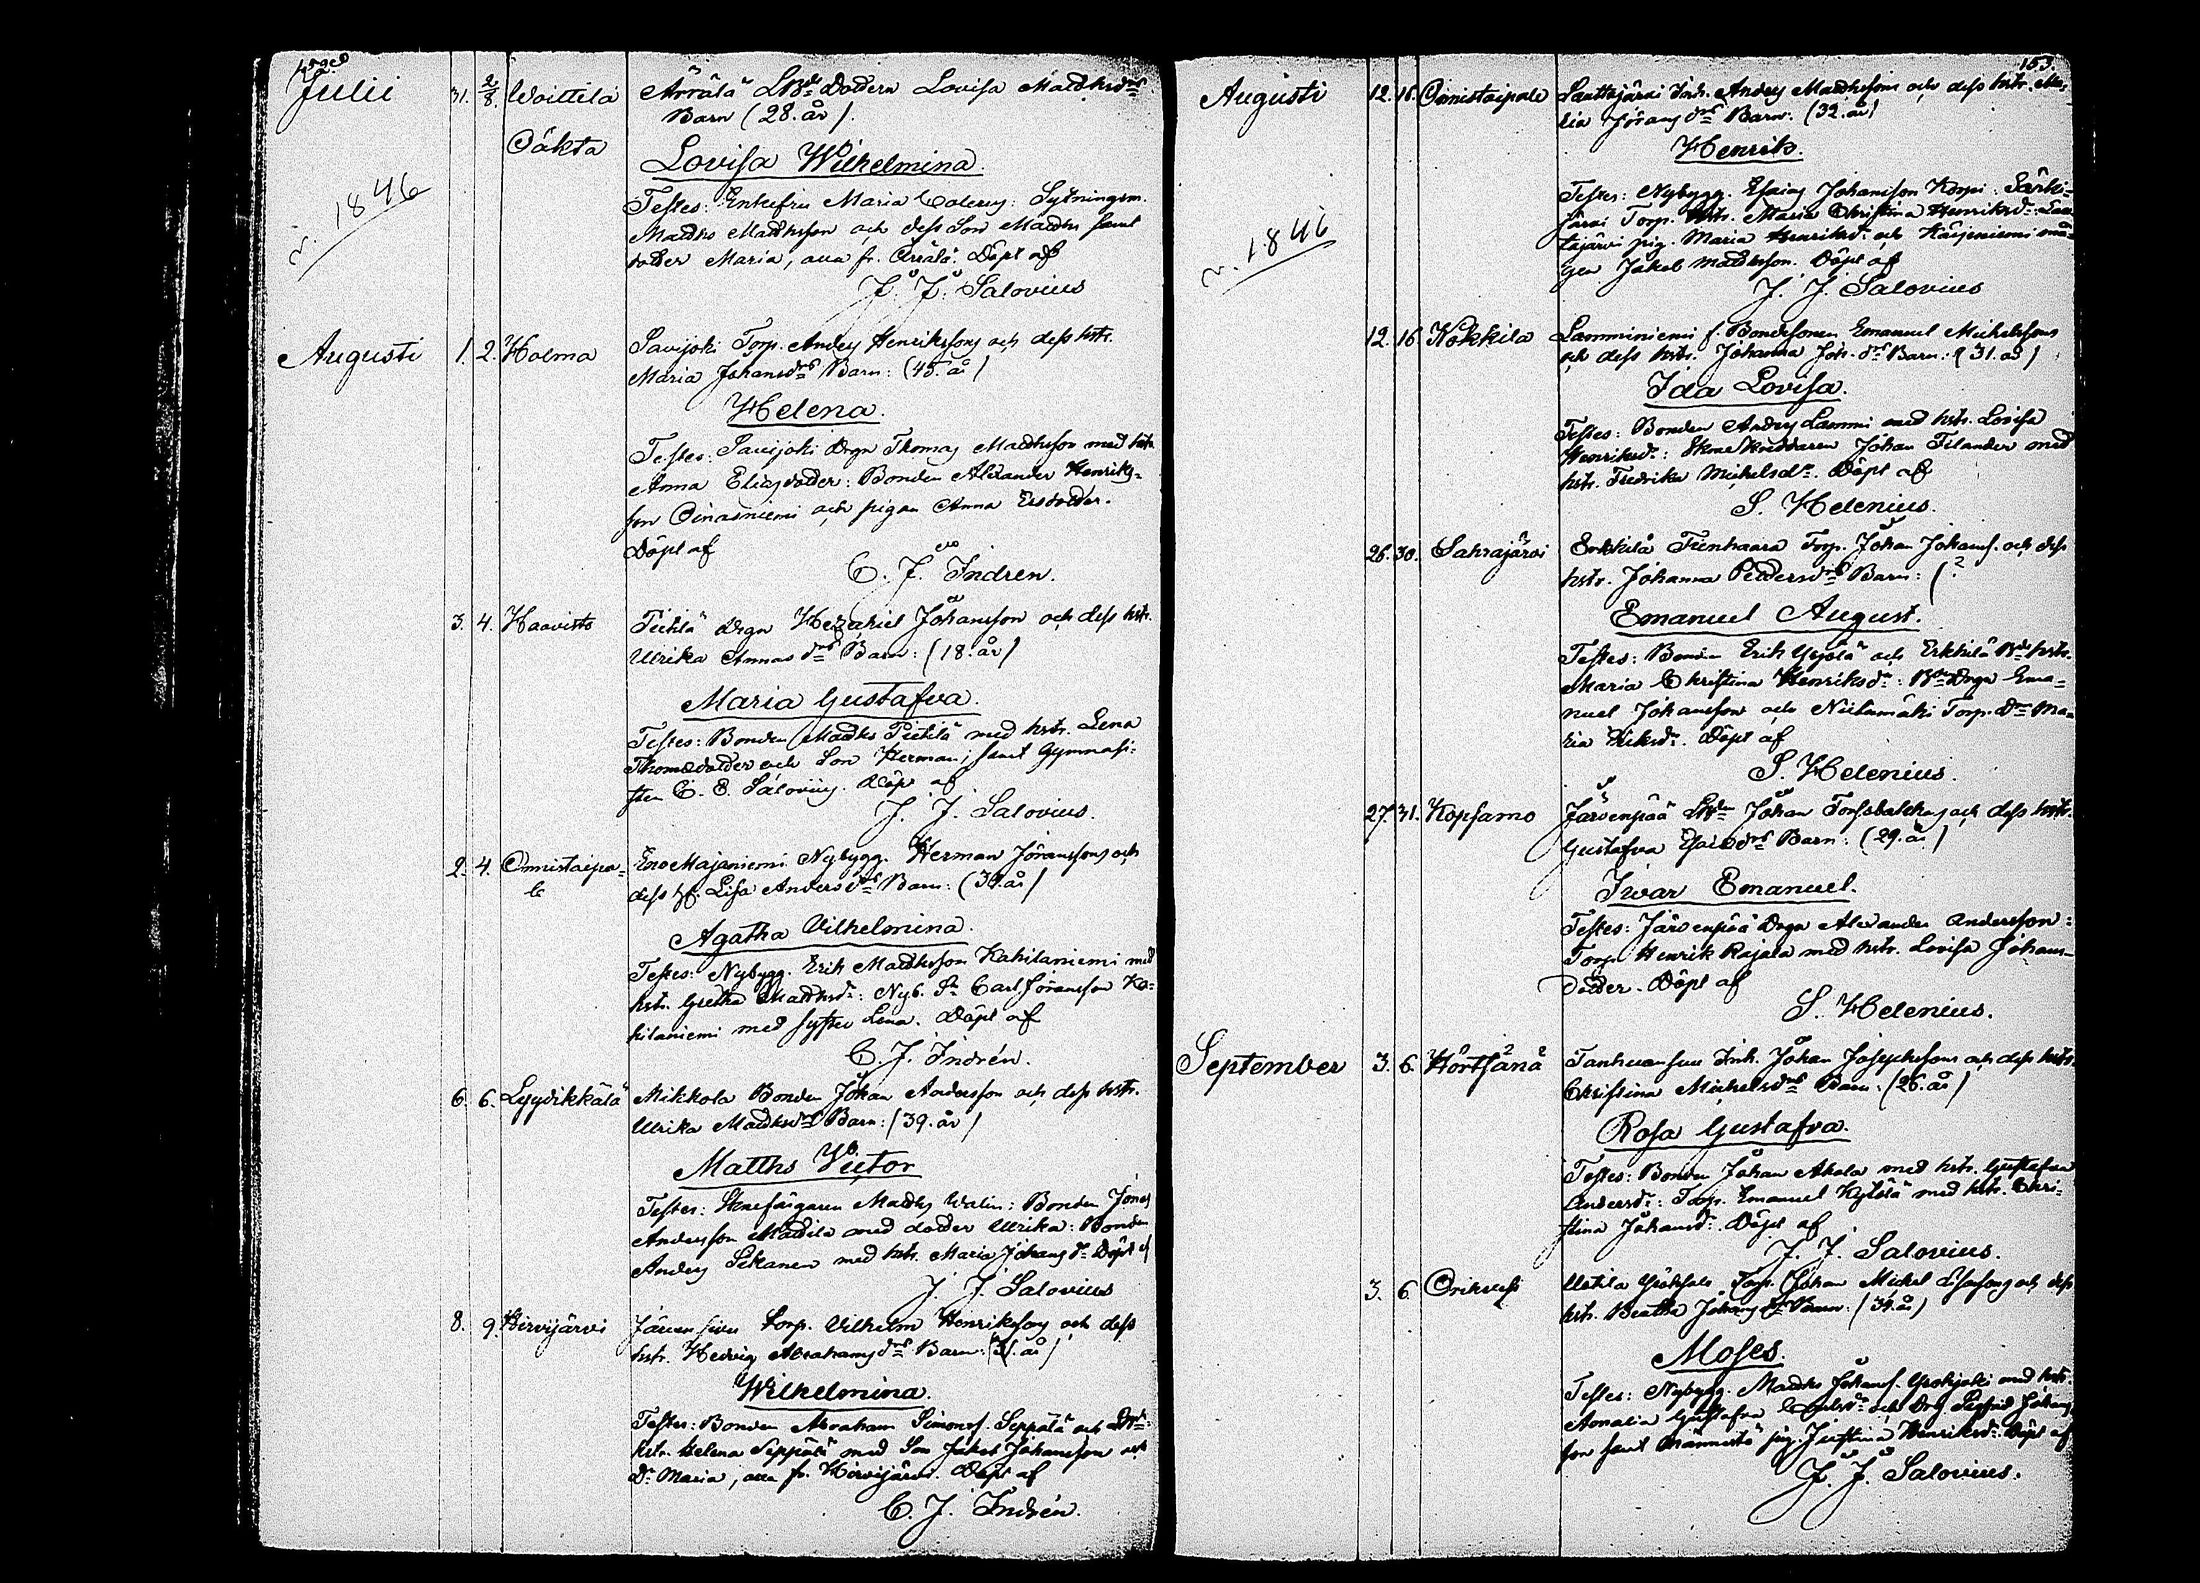 Julii 31. 2/8. Woittila Ärrälä Ldb: Dottern Lovisa Matthsdrs
Barn (28. år)
Oäkta
Lovisa Wilhelmina.
v. 1846
Testes: Enkefru Maria Sytningsm.
Matths Matthsson och dess Son Matths samt
dotter Maria, alla fr. Ärrälä. Döpt af
J. J. Salovius
Augusti 1. 2. Holma Savijoki Torp. Anders Henrikssons och dess hstr.
Maria Johansdrs Barn: (45. år)
Helena.
Testes: Savijoki Drgn Thomas Matthsson med hstr.
Anna Eliasdotter: Bonden Alexander Henriks=
son Oinasniemi och pigan Anna Ersdotter.
Döpt af
C. J. Indren.
3. 4. Haavisto Pietilä Drgn Hezekiel Johansson och dess hstr.
Ulrika Annas drs Barn: (18. år)
Maria Gustafva.
Testes: Bonden Matths Pietilä med hstr. Lena
Thomædotter och Son Herman, samt Gymnasi=
sten C. E. Salovius. Döpt af
J. J. Salovius.
2. 4. Onnistaipa=
le
Nybygg. Herman Göranssons och
dess H. Lisa Anders drs Barn: (34. år)
Agatha Vilhelmina.
Testes: Nybygg. Erik Matthsson Kahilaniemi med
hstr. Gretha Matthsdr: Nyb. Sn Carl Göransson Ka=
hilaniemi med syster Lena. Döpt af
C. J. Indrén.
6. 6. Lyydikkälä Mikkola Bonden Johan Andersson och dess hstr.
Ulrika Matthsdrs Barn: (39. år)
Matths Victor
Testes: Skenfärgaren Matths Walin: Bonden Jonas
Andersson Mattila med dotter Ulrika: Bonden
Anders Sikanen med hstr. Maria Johans dr. Döpt af
J. J. Salovius
8. 9. Hirvijärvi Järvensivu Torp. Vilhelm Henrikssons och dess
hstr. Hedvig Abrahams drs Barn: (31. år)
Wilhelmina.
Testes: Bonden Abraham Simonss. Seppälä och
hstr. Helena Seppälä med Son Jakob Johansson och
Dr Maria, alla fr. Hirvijärvi. Döpt af
C. J. Indrén.
153.
Augusti 12. 16. Onnistaipale Saattojärvi Inh. Anders Matthssons och dess hstr. Ma=
ria Görans drs Barn: (32. år)
Henrik.
v. 1846
Testes: Nybygg. Esaias Johansson Korpi: Särki=
järvi Torp. hstr. Maria Christina Henriksdr: Saat=
tajärvi pig. Maria Henriksdr och Karjeniemi må=
gen Jakob Matthsson. Döpt af
J. J. Salovius
12. 16 Kokkila Lamminiemi f. Bondesonen Emanuel Michelssons
och dess hstr. Johanna Joh. drs Barn: (31. år)
Ida Lovisa.
Testes: Bonden Anders Lammi med hstr. Lovisa
Henriksdr: Skoneskräddaren Johan Filander med
hstr. Fredrika Michelsdr. Döpt af
S. Helenius.
26. 30. Sahrajärvi Erkkilä Torp. Johan Johans. och dess
hstr. Johanna Pettersdrs Barn: (?
Emanuel August.
Testes: Bonden Erik Yrjölä och Erkkilä Bde hstr.
Maria Christina Henriksdr: Bde Drgn Ema=
nuel Johansson och Niilumäki Torp. Dr Ma=
ria Eriksdr. Döpt af
S. Helenius.
27. 31. Kopsamo Järvenpää Johan och dess hstr.
Gustafva Esaiæ drs Barn: (29. år)
Iwar Emanuel.
Testes: Järvenpää Drgn Alexander Andersson:
Torp. Henrik Rajala med hstr. Lovisa Johans=
dotter. Döpt af
S. Helenius.
September 3. 6. Hörtsänä Inh. Johan Josephssons och dess hstr.
Christina Michelsdrs Barn: (26. år)
Rosa Gustafva.
Testes: Bonden Johan Akola med hstr. Gustafva
Andersdr: Torp. Emanuel Kylölä med hstr. Chri=
stina Johansdr. Döpt af
J. J. Salovius.
3. 6. Orihvesi Torp. Johan Michel och dess
hstr. Beatha Johans Barn: (34. år)
Moses.
Testes: Nybygg. Matths Johans. med hstr.
Amalia Gustafva och Drg Sigfrid Johans=
son samt Männistö pig. Justina Henriksdr. Döpt af
J. J. Salovius.